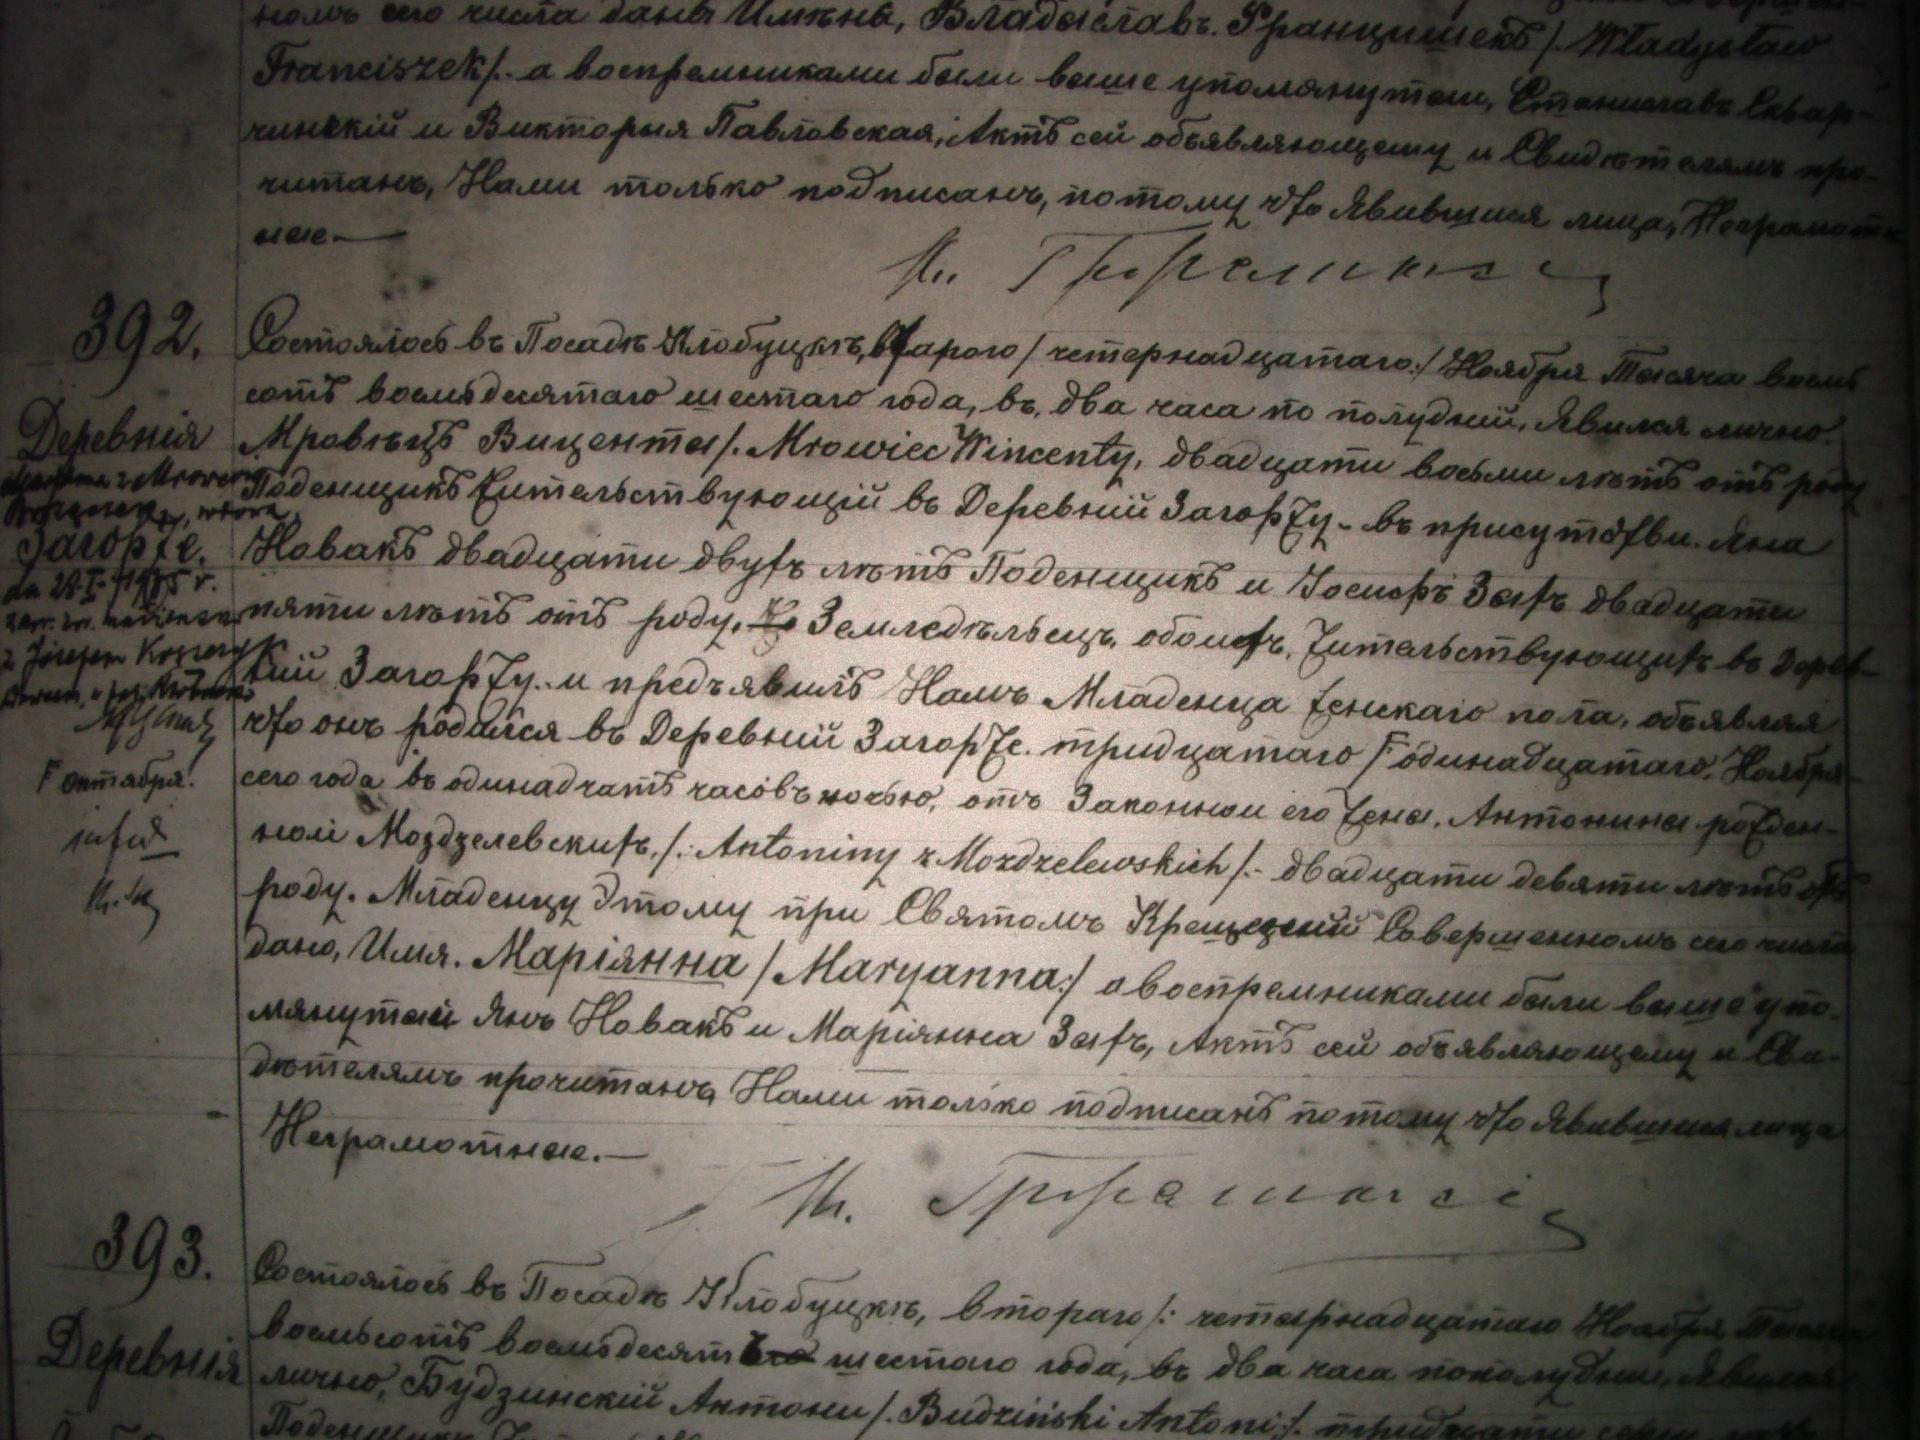 номъ сего числа даны Имѣна, Владыславъ. Францишекъ /. Władysław
Franciszek /. а воспремниками были выше упомянутыи, Станиславъ Сквар-
чинскій и Викторыя Павловская, Актъ сей объявляющему и Свидѣтелямъ про-
читанъ, Нами только подписанъ, потому что Явившися лица, Неграмот
ные.—
392.
Состоялось въ Посадѣ Клобуцкѣ, втараго / четернадцатаго:/ Ноября Тысяча восмь
сотъ восмьдесятаго шестаго года, въ, два часа по полудній, Явился лично.
Деревнія
Мровѣцъ Виценты /. Mrowiec Wincenty, двадцати восьми лѣтъ отъ роду
Поденщикъ Жительствующій въ Деревній Загоржу.. въ присутствіи. Яна
Загорже.
Новакъ двадцати двухъ лѣтъ Поденщикъ и Іосифъ Зыхъ двадцати
da 28.I.1935 r.
пяти лѣтъ отъ роду, Земледѣльецъ, обоихъ, Жительствующихъ въ Дерев-
ній Загоржу.. и предъявилъ Намъ Младенца женскаго пола, объявляя
что онъ родался въ Деревній Загорже. тридцатаго Г одинадцатаго. Ноября
Г Октября.
сего года въ одинадчать часовъ ночью, отъ Законной его жены, Антонины рожден-
ной Моздзелевскихъ, /: Antoniny z Mozdzelewskich /.- двадцати девяти лѣтъ отъ
роду. Младенцу Этому при Святомъ Крещеній Совершенномъ сего числа
дано, Имя. Маріянна / Maryanna:/ а воспремниками были выше упо-
мянутый Янъ Новакъ и Маріянна Зыхъ, Актъ сей объявляющему и Сви-
дѣтелямъ прочитанъ, Нами только подписанъ потому что Явившися лица
Неграмотные.—
393.
Состоялось въ Посадѣ Клобуцкѣ, втораго /: четырнадцатаго Ноября Тысяча
восмьсотъ восмьдесятъ шестаго года, въ два часа пополудни, Явился
Деревнія
лично, Будзинскій Антони /. Budziński Antoni /.
Поденщикъ